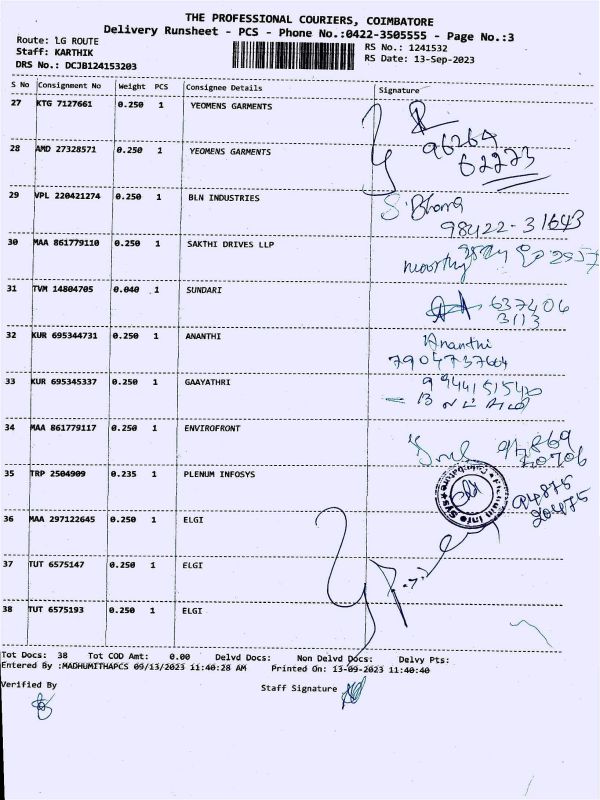 THE PROFESSIONAL COURIERS, COIMBATORE
Delivery Runsheet - PCS - Phone No.:0422-3505555 - Page No.:3
Route: LG ROUTE
RS No.: 1241532
Staff: KARTHIK
RS Date: 13-Sep-2023
DRS No.: DCJB124153203
S No Consignment No Weight PCS Consignee Details Signature
27 KTG 7127661 0.250 1 YEOMENS GARMENTS
96264
62223
28 AMD 27328571 0.250 1 YEOMENS GARMENTS
29 VPL 220421274 0.250 1 BLN INDUSTRIES
98422-31643
30 MAA 861779110 0.250 1 SAKTHI DRIVES LLP
moorthy
31 TVM 14804705 0.040 1 SUNDARI
637406
3113
32 KUR 695344731 0.250 1 ANANTHI
Ananthi
7904737664
33 KUR 695345337 0.250 1 GAAYATHRI
34 MAA 861779117 0.250 1 ENVIROFRONT
35 TRP 2504909 0.235 1 PLENUM INFOSYS
94875
20475
36 MAA 297122645 0.250 1 ELGI
37 TUT 6575147 0.250 1 ELGI
38 TUT 6575193 0.250 1 ELGI
Tot Docs: 38 Tot COD Amt: 0.00 Delvd Docs: Non Delvd Docs: Delvy Pts:
Entered By :MADHUMITHAPCS 09/13/2023 11:40:28 AM Printed On: 13-09-2023 11:40:40
Verified By
Staff Signature